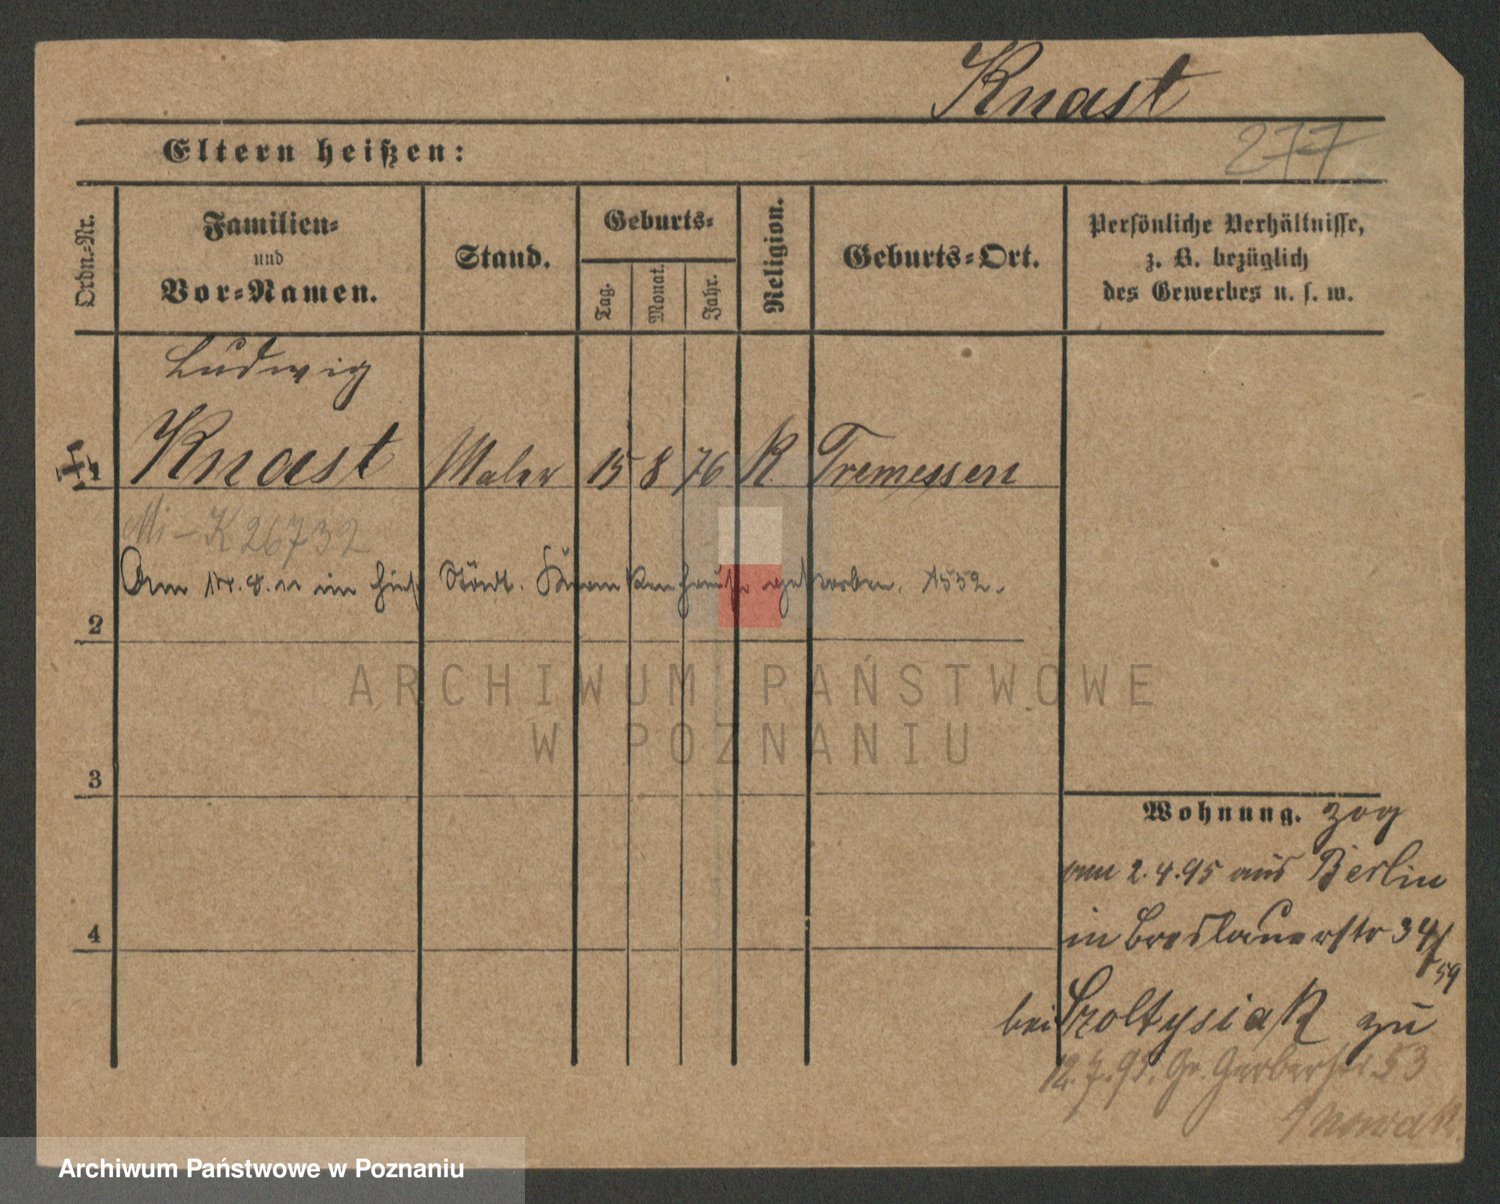 Knast
Eltern heißen:
277
Ordn.-Nr.
Familien-
und
Vor-Namen.
Stand.
Geburts-
Tag.
Monat.
Jahr.
Religion.
Geburts-Ort.
Persönliche Verhältnisse,
z. B. bezüglich
des Gewerbes u. s. w.
Ludwig
1 Knast Maler 15 8 76 K. Tremessen
Mi-K 26732
Am im hies. Städt. Krankenhause gestorben. 1552.
2
ARCHIWUM PAŃSTWOWE
W POZNANIU
3
Wohnung. zog
am 2.4.95 aus Berlin
in Breslauerstr 34/
59
4
bei Szoltysiak zu
12.7.95. Gr. Gerberstr. 53
Nowak
Archiwum Państwowe w Poznaniu